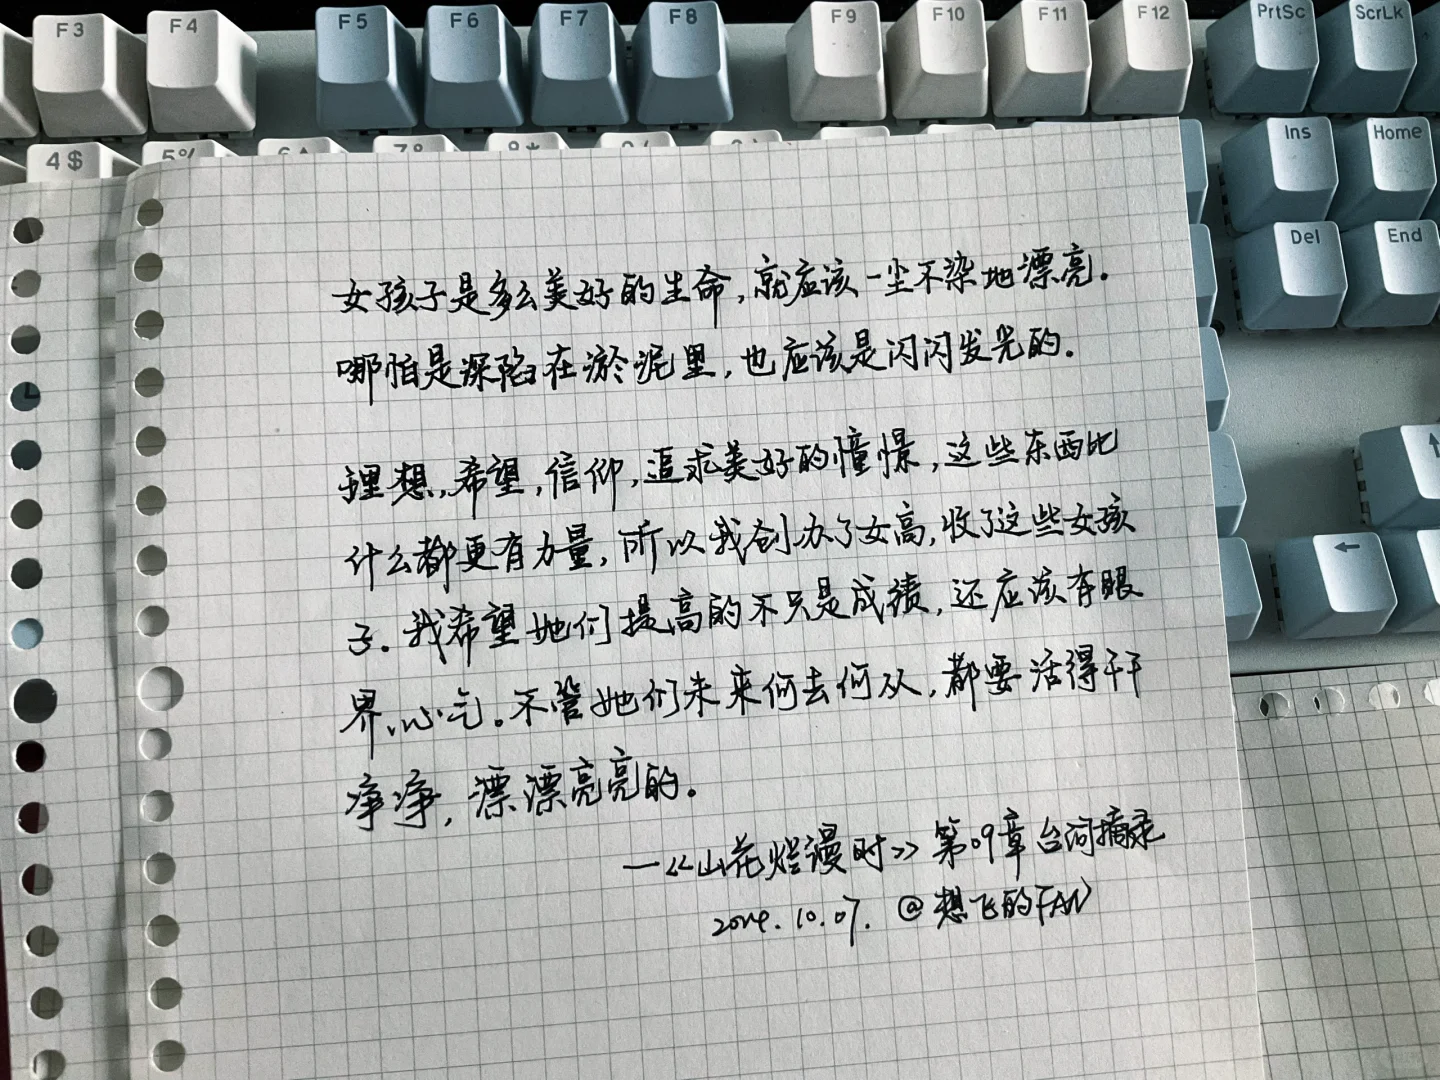 F3 F4 F5 F6 F7 F8 F9 F10 F11 F12 PrtSc ScrLk
4 $ 5 %
Ins Home
Del End
女孩子是多么美好的生命，就应该一尘不染地漂亮.
哪怕是深陷在淤泥里，也应该是闪闪发光的.
理想，希望，信仰，追求美好的憧憬，这些东西比
什么都更有力量，所以我创办了女高，收了这些女孩
子.我希望她们提高的不只是成绩，还应该有眼
界、心气。不管她们未来何去何从，都要活得干干
净净，漂漂亮亮的.
—《山花烂漫时》第09章台词摘录
2024.10.07. @想飞的FAN
↑
←